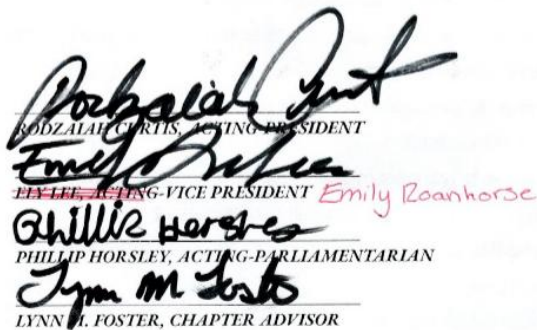 RODZAIAH CURTIS, ACTING-PRESIDENT
ELY LEE, ACTING-VICE PRESIDENT Emily Roanhorse
PHILLIP HORSLEY, ACTING-PARLLIAMENTARIAN
Lynn M. Foster
LYNN M. FOSTER, CHAPTER ADVISOR